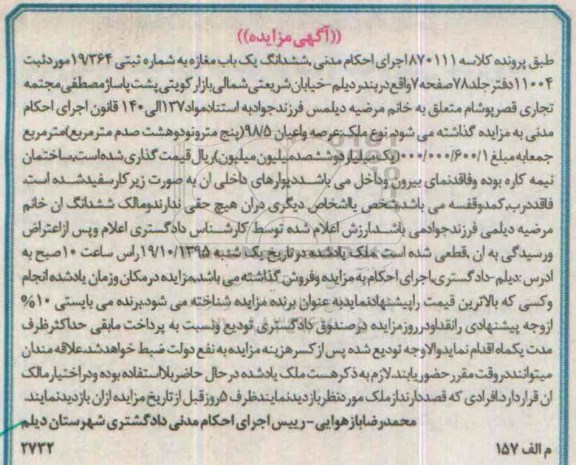 ((آگهی مزایده))
طبق پرونده کلاسه ۸۷۰۱۱۱اجرای احکام مدنی ،ششدانگ یک باب مغازه به شماره ثبتی ۱۹/۳۶۴موردثبت
۱۱۰۰۴دفتر جلد۷۸صفحه۷واقع دربندر دیلم -خیابان شریعتی شمالی بازار کویتی پشت پاساژمصطفی مجتمه
تجاری قصرپوشام متعلق به خانم مرضیه دیلمس فرزندجوادبه استنادمواد۱۳۷الی۱۴۰ قانون اجرای احکام
مدنی به مزایده گذاشته می شود. نوع ملک:عرصه واعیان ۹۸/۵(پنج مترونودوهشت صدم مترمربع)مترمربع
جمعابه مبلغ ۰۰۰/۰۰۰/۶۰۰/۱(یک میلیاردوششصدمیلیون میلیون)ریال قیمت گذاری شده است،ساختمان
نیمه کاره بوده وفاقدنمای بیرون وداخل می باشددیوارهای داخلی ان به صورت زیرکارسفیدشده است.
فاقددرب،کمدوقفسه می باشدشخص یااشخاص دیگری دران هیچ حقی ندارندومالک ششدانگ ان خانم
مرضیه دیلمی فرزندجوادمی باشد.ارزش اعلام شده توسط کارشناس دادگستری اعلام وپس ازاعتراض
ورسیدگی به ان ،قطعی شده است .ملک یادشده درتاریخ یک شنبه ۱۹/۱۰/۱۳۹۵راس ساعت ۱۰صبح به
ادرس :دیلم-دادگستری،اجرای احکام به مزایده وفروش گذاشته می باشد.مزایده درمکان وزمان یادشده انجام
وکسی که بالاترین قیمت راپیشنهادنمایدبه عنوان برنده مزایده شناخته می شود.برنده می بایستی ۱۰%
ازوجه پیشنهادی رانقداودرروزمزایده درصندوق دادگستری تودیع ونسبت به پرداخت مابقی حداکثرظرف
مدت یکماه اقدام نمایدوالاوجه تودیع شده پس ازکسرهزینه مزایده به نفع دولت ضبط خواهدشد.علاقه مندان
میتوانند دروقت مقررحضوریابند.لازم به ذکرهست ملک یادشده درحال حاضربلااستفاده بوده ودراختیارمالک
ان قرار دارد.افرادی که قصددارندازملک موردنظربازدیدنمایندظرف ۵روزقبل ازتاریخ مزایده ازان بازدیدنمایند.
محمدرضاباز هوایی-رییس اجرای احکام مدنی دادگشتری شهرستان دیلم
م الف ۱۵۷ ۲۷۳۲